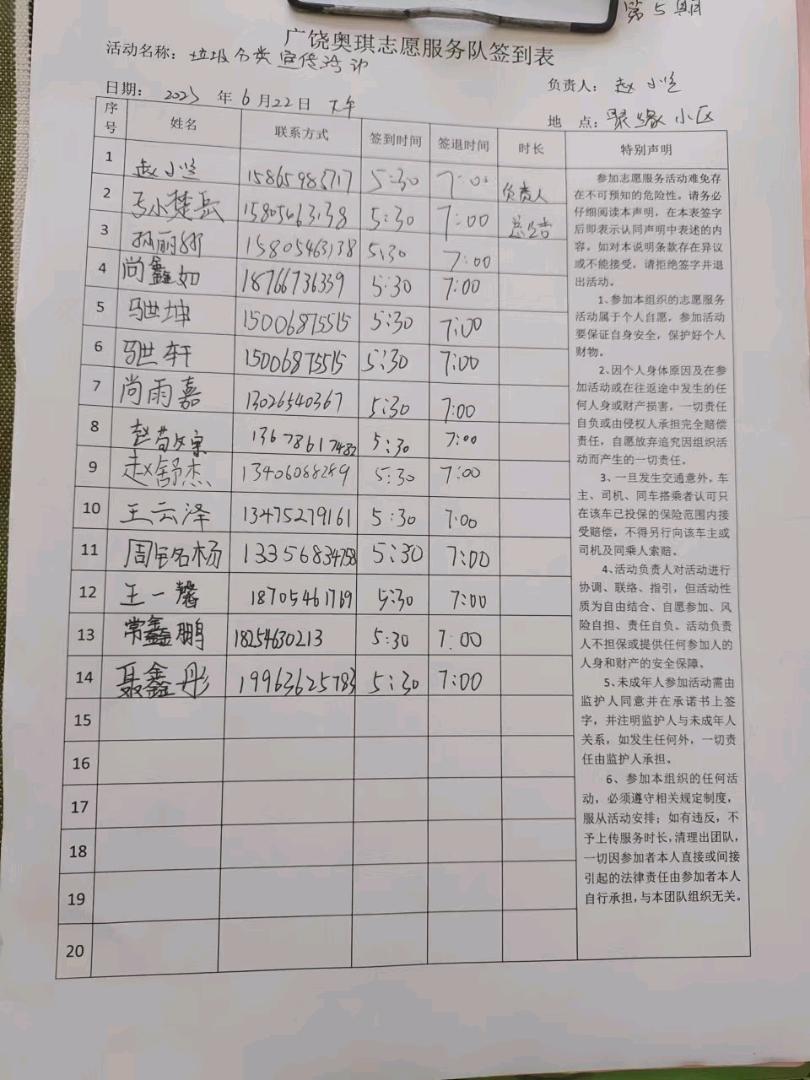 第5期
广饶奥琪志愿服务队签到表
活动名称：垃圾分类宣传活动
日期：2023年6月22日 下午
负责人：赵小兰
地点：聚缘小区
序号 姓名 联系方式 签到时间 签退时间 时长 特别声明
1 赵小兰 15865985717 5:30 7:00 负责人
2 15805463138 5:30 7:00
3 孙丽娜 15805463138 5:30 7:00
4 尚鑫如 18766736339 5:30 7:00
5 骈世坤 15006875515 5:30 7:00
6 骈世轩 15006875515 5:30 7:00
7 尚雨嘉 13026540367 5:30 7:00
8 5:30 7:00
9 赵舒杰 13406088289 5:30 7:00
10 王云泽 13475279161 5:30 7:00
11 13356834758 5:30 7:00
12 王一馨 18705461769 5:30 7:00
13 常鑫鹏 18254630213 5:30 7:00
14 聂鑫彤 19963625783 5:30 7:00
15
16
17
18
19
20
参加志愿服务活动难免存
在不可预知的危险性。请务必
仔细阅读本声明，在本表签字
后即表示认同声明中表述的内
容。如对本说明条款存在异议
或不能接受，请拒绝签字并退
出活动。
1、参加本组织的志愿服务
活动属于个人自愿，参加活动
要保证自身安全，保护好个人
财物。
2、因个人身体原因及在参
加活动或在往返途中发生的任
何人身或财产损害，一切责任
自负或由侵权人承担完全赔偿
责任，自愿放弃追究因组织活
动而产生的一切责任。
3、一旦发生交通意外，车
主、司机、同车搭乘者认可只
在该车已投保的保险范围内接
受赔偿，不得另行向该车主或
司机及同乘人索赔。
4、活动负责人对活动进行
协调、联络、指引，但活动性
质为自由结合、自愿参加、风
险自担、责任自负。活动负责
人不担保或提供任何参加人的
人身和财产的安全保障。
5、未成年人参加活动需由
监护人同意并在承诺书上签
字，并注明监护人与未成年人
关系，如发生任何外，一切责
任由监护人承担。
6、参加本组织的任何活
动，必须遵守相关规定制度，
服从活动安排；如有违反，不
予上传服务时长，清理出团队，
一切因参加者本人直接或间接
引起的法律责任由参加者本人
自行承担，与本团队组织无关。